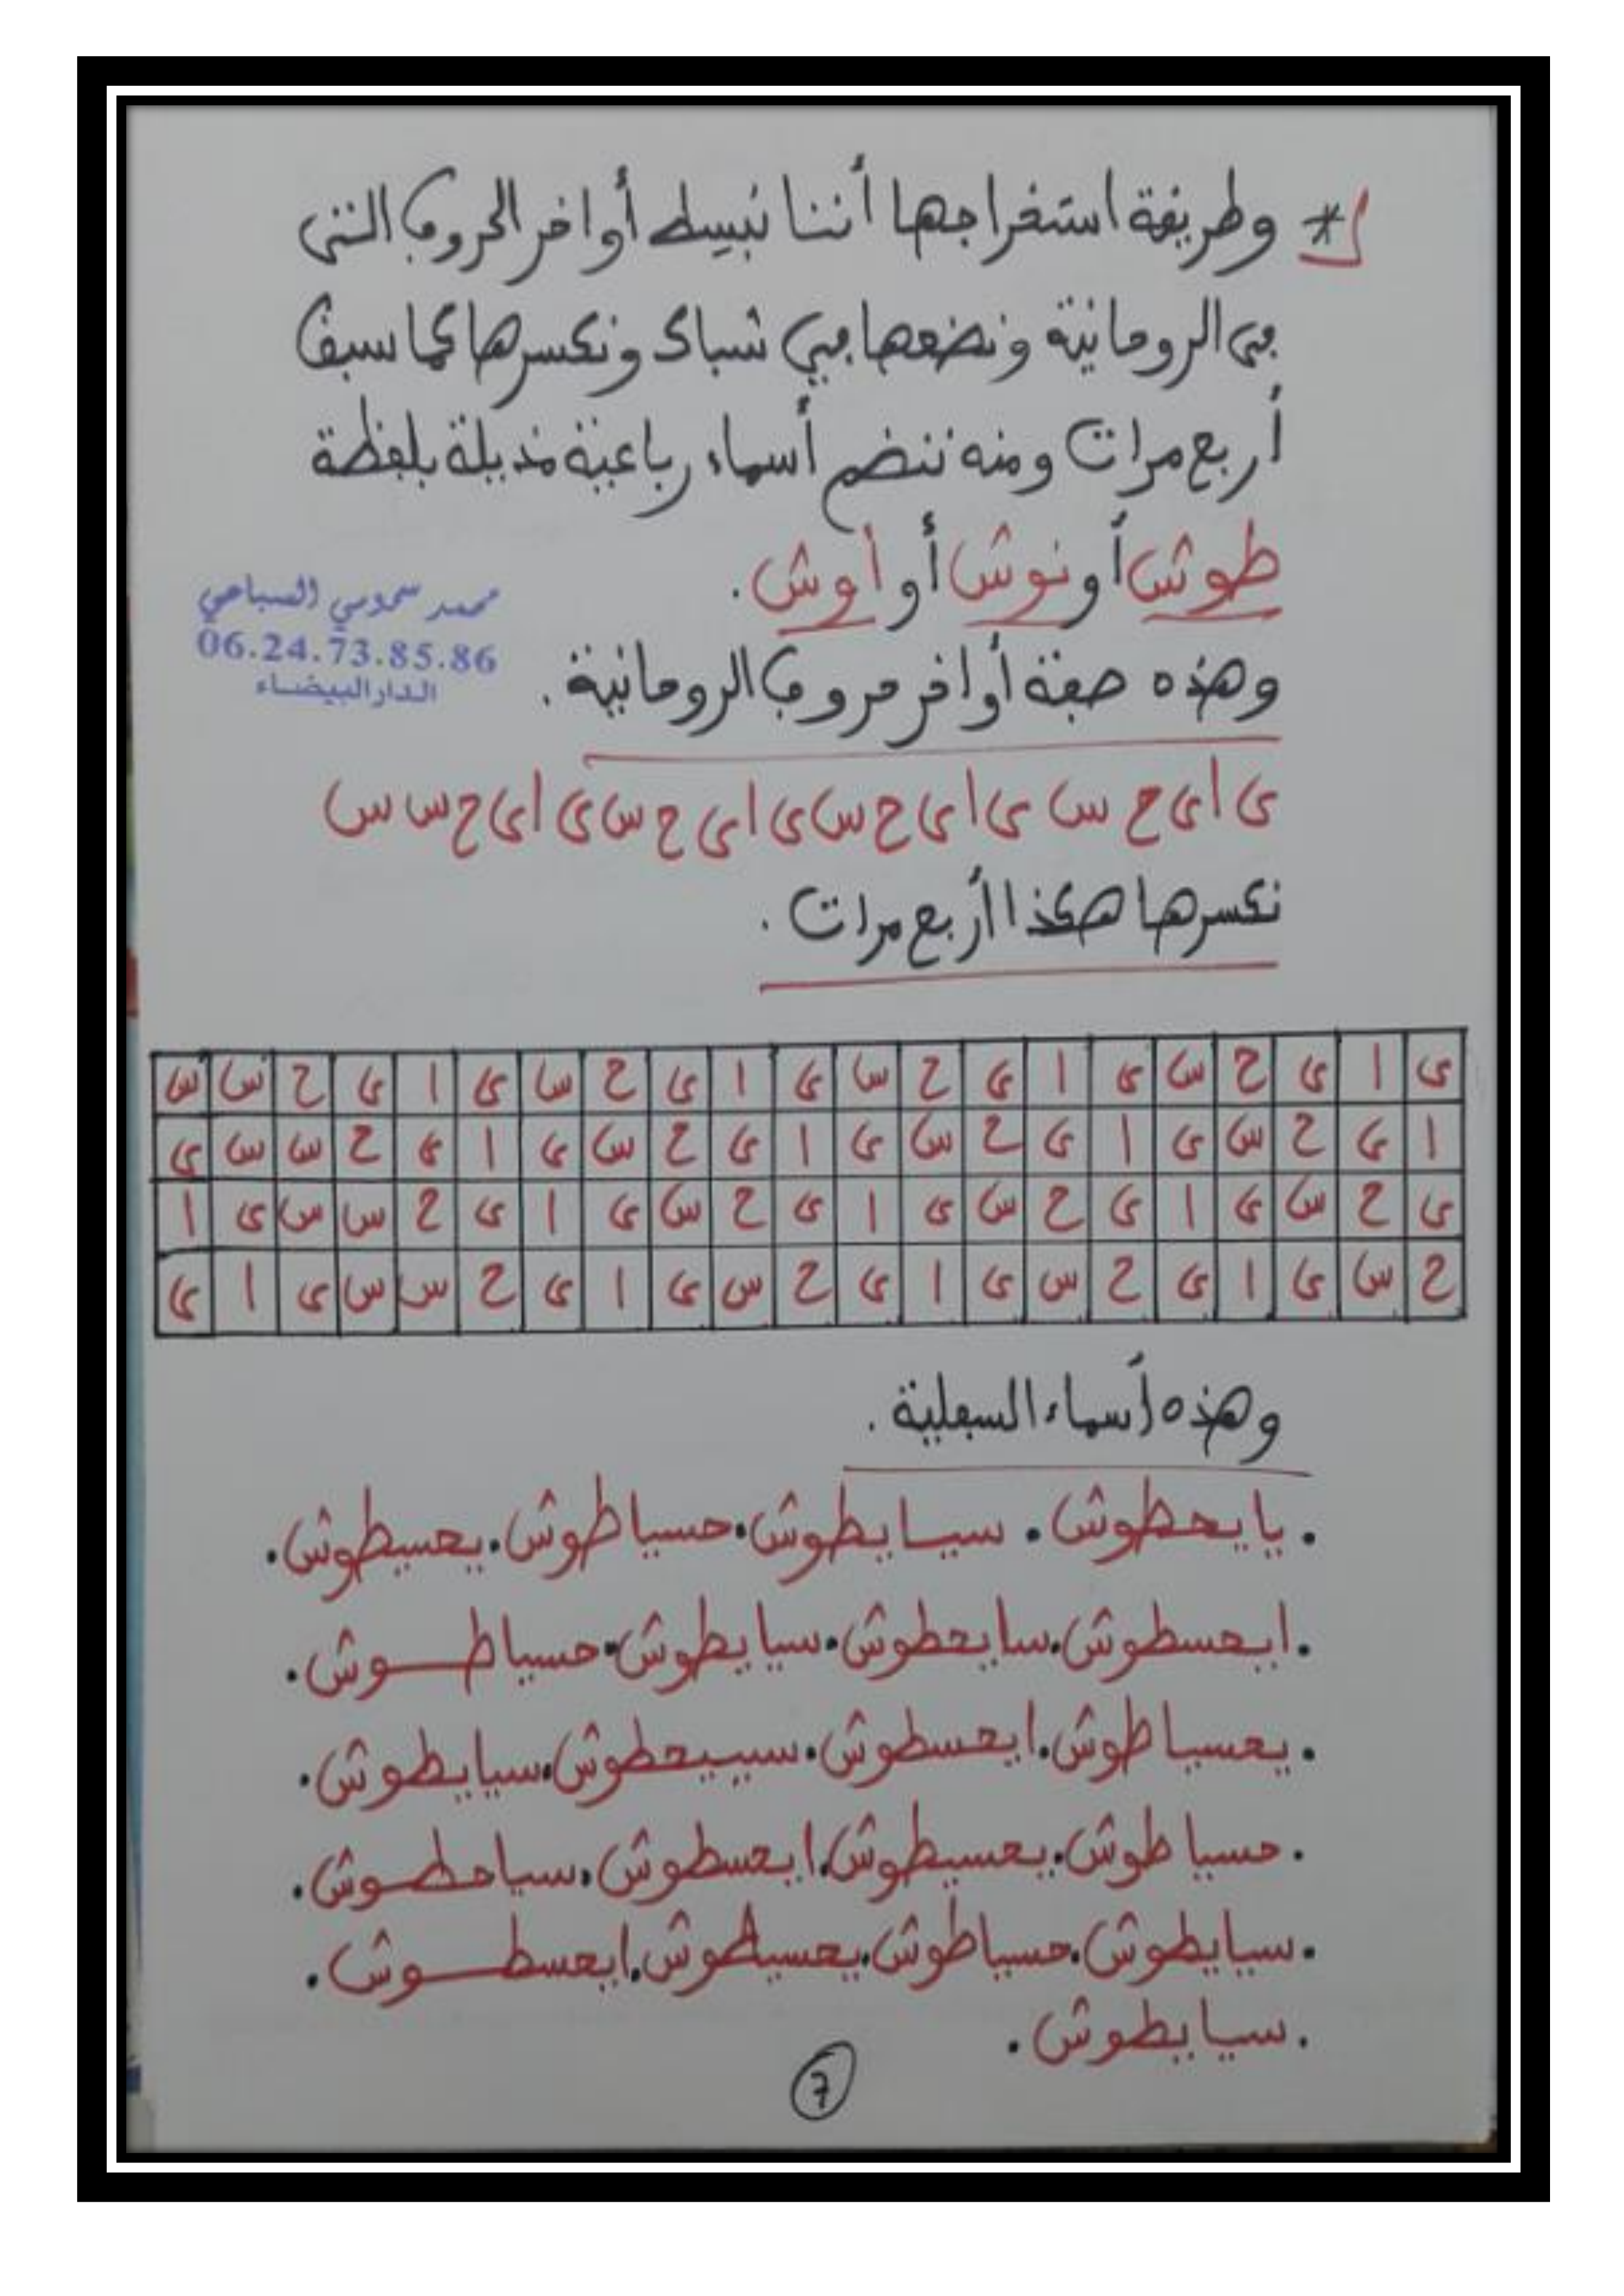 * وطريقة استخراجها أننا نبسط أواخر الحروف التي
في الرومانية ونضعها في شباك ونكسرها كما سبق
أربع مرات ومنه ننضم أسماء رباعية مذيلة بلفظة
طوش أو نوش أو أوش.
محمد سحومي السباعي
06.24.73.85.86
الدار البيضاء
وهذه صفة أواخر حروف الرومانية.
ى ا ى ح س ى ا ى ح س ى ا ى ح س ى ا ى ح س س
نكسرها هكذا أربع مرات.
ى ا ى ح س ى ا ى ح س ى ا ى ح س ى ا ى ح س س
ا ى ح س ى ا ى ح س ى ا ى ح س ى ا ى ح س س ى
ى ح س ى ا ى ح س ى ا ى ح س ى ا ى ح س س ى ا
ح س ى ا ى ح س ى ا ى ح س ى ا ى ح س س ى ا ى
وهذه أسماء السفلية.
. يايحطوش. سيايطوش. حسياطوش. يحسيطوش.
. ايحسطوش. سايحطوش. سيايطوش. حسياطوش.
. يحسياطوش. ايحسطوش. سييحطوش. سيايطوش.
. حسياطوش. يحسيطوش. ايحسطوش. سياحطوش.
. سيايطوش. حسياطوش. يحسيطوش. ايحسطوش.
. سيايطوش.
7